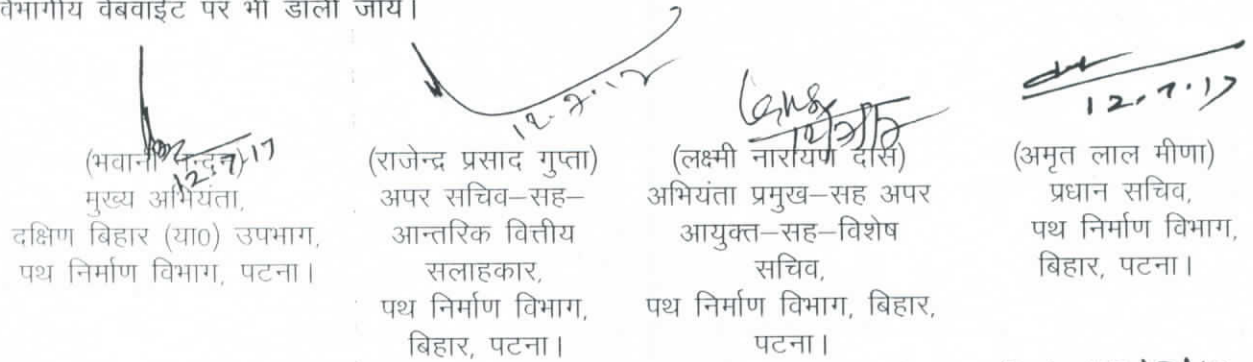 वेभागीय वेबवाईट पर भी डाली जाय।
12.7.17
(भवानी नन्दन)
मुख्य अभियंता,
दक्षिण बिहार (या0) उपभाग,
पथ निर्माण विभाग, पटना।
12.7.17
(राजेन्द्र प्रसाद गुप्ता)
अपर सचिव–सह–
आन्तरिक वित्तीय
सलाहकार,
पथ निर्माण विभाग,
बिहार, पटना।
(लक्ष्मी नारायण दास)
अभियंता प्रमुख–सह अपर
आयुक्त–सह–विशेष
सचिव,
पथ निर्माण विभाग, बिहार,
पटना।
12.7.17
(अमृत लाल मीणा)
प्रधान सचिव,
पथ निर्माण विभाग,
बिहार, पटना।